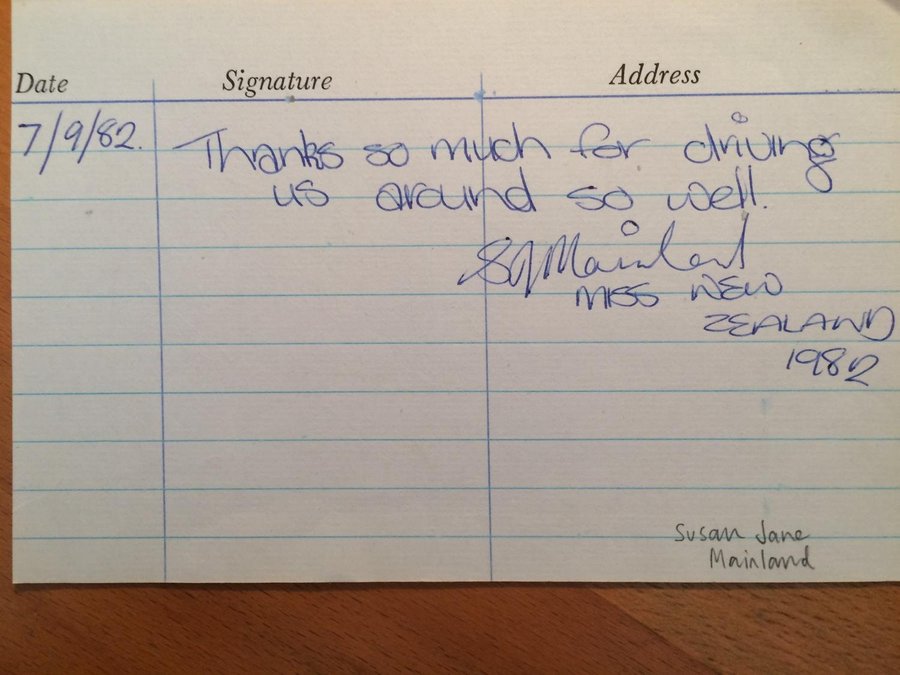 Date Signature Address
7/9/82. Thanks so much for driving
us around so well.
SJMainland
MISS NEW
ZEALAND
1982
Susan Jane
Mainland